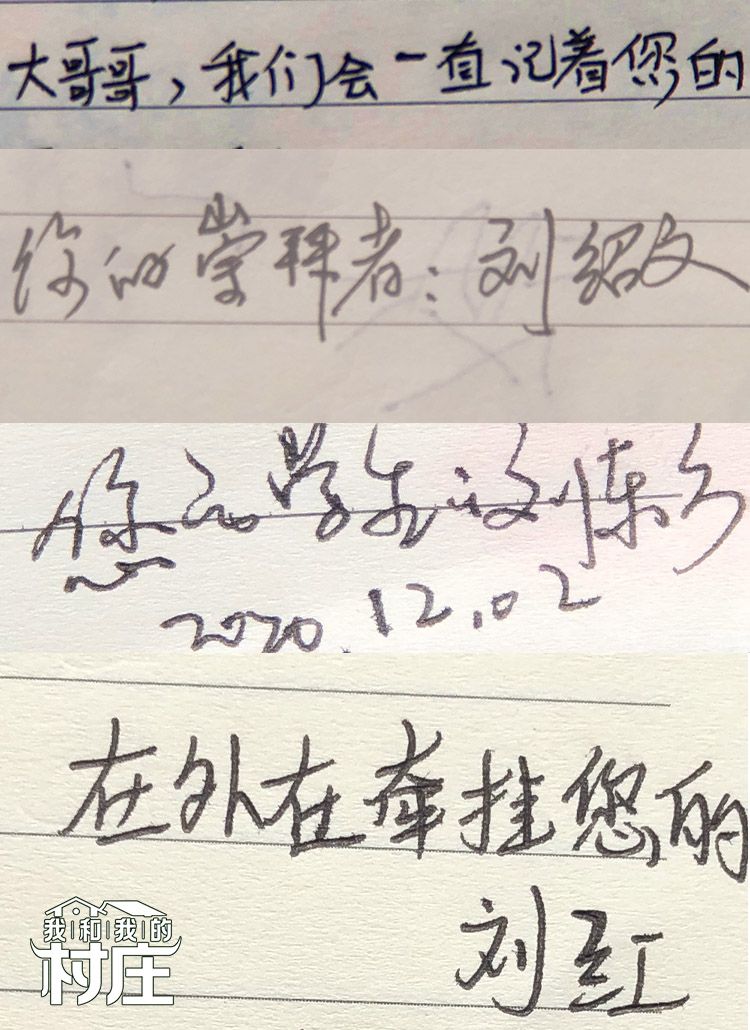 大哥哥，我们会一直记着您的
你的崇拜者：刘绍文
您的学生：刘陈
2020.12.02
在外在牵挂您的
刘红
我和我的
村庄